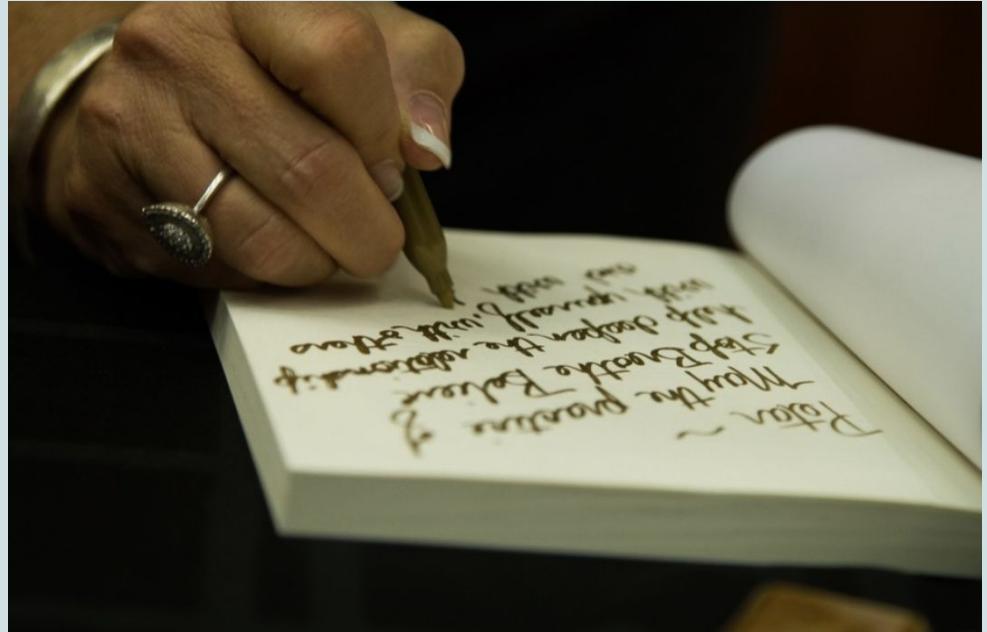 Peter ~
May the practice of
Stop Breathe Believe
help deepen the relationship
with yourself, with others
and with